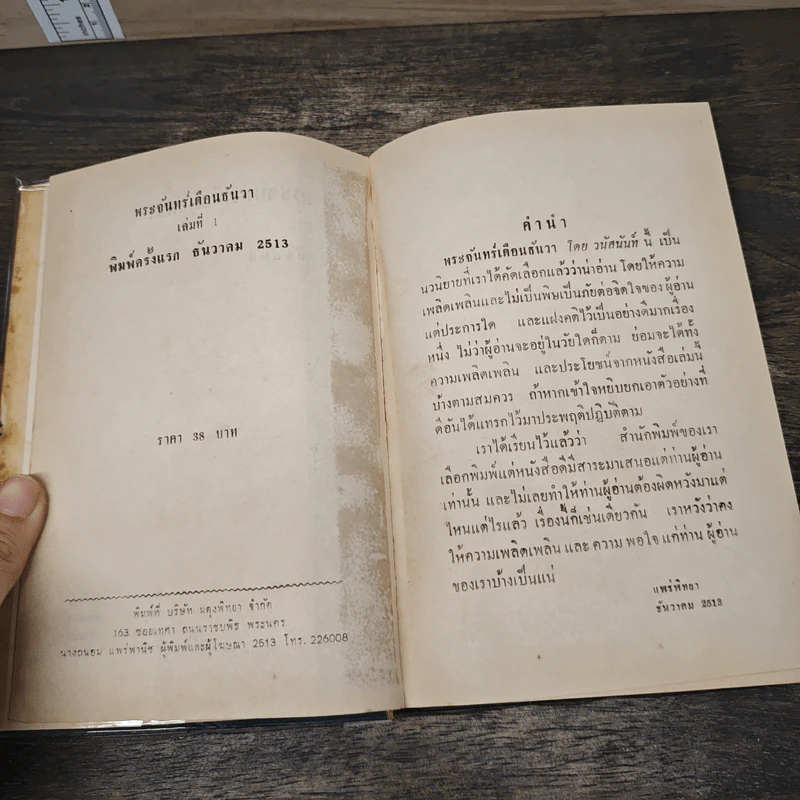 พระจันทร์เดือนธันวา
เล่มที่ 1
พิมพ์ครั้งแรก ธันวาคม 2513
ราคา 38 บาท
พิมพ์ที่ บริษัท ผดุงพิทยา จำกัด
163 ซอยเทศา ถนนราชบพิธ พระนคร
นางถนอม แพร่พานิช ผู้พิมพ์และผู้โฆษณา 2513 โทร. 226008
คำนำ
พระจันทร์เดือนธันวา โดย วนัสนันท์ นี้ เป็น
นวนิยายที่เราได้คัดเลือกแล้วว่าน่าอ่าน โดยให้ความ
เพลิดเพลินและไม่เป็นพิษเป็นภัยต่อจิตใจของผู้อ่าน
แต่ประการใด และแฝงคติไว้เป็นอย่างดีมากเรื่อง
หนึ่ง ไม่ว่าผู้อ่านจะอยู่ในวัยใดก็ตาม ย่อมจะได้ทั้ง
ความเพลิดเพลิน และประโยชน์จากหนังสือเล่มนี้
บ้างตามสมควร ถ้าหากเข้าใจหยิบยกเอาตัวอย่างที่
ดีอันได้แทรกไว้มาประพฤติปฏิบัติตาม
เราได้เรียนไว้แล้วว่า สำนักพิมพ์ของเรา
เลือกพิมพ์แต่หนังสือดีมีสาระมาเสนอแต่ท่านผู้อ่าน
เท่านั้น และไม่เลยทำให้ท่านผู้อ่านต้องผิดหวังมาแต่
ไหนแต่ไรแล้ว เรื่องนี้ก็เช่นเดียวกัน เราหวังว่าคง
ให้ความเพลิดเพลิน และ ความ พอใจ แก่ท่าน ผู้อ่าน
ของเราบ้างเป็นแน่
แพร่พิทยา
ธันวาคม 2513